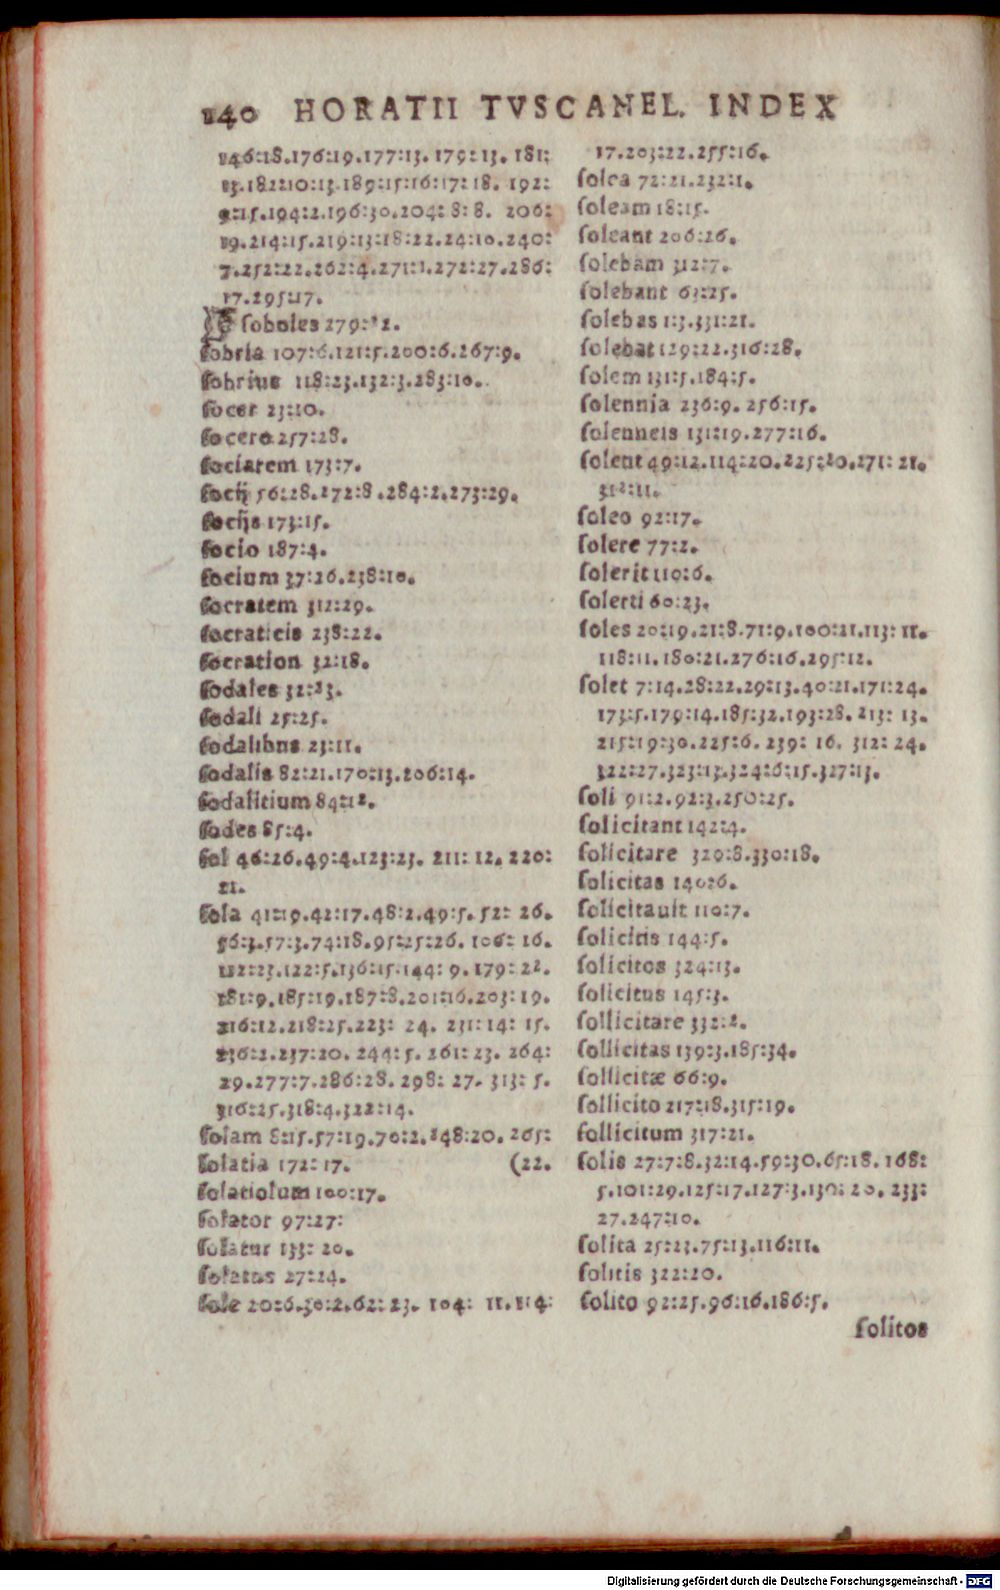 240 HORATII TVSCANEL. INDEX
246:18.176:19.177:13. 179:13. 181:
13.182:10:13.189:15:16:17:18. 192:
9:15.194:2.196:30.204: 8: 8. 206:
19.214:15.219:13:18:22.24:10.240:
7.252:22.262:4.271:1.272:27.286:
17.295:17.
ſoboles 279:
ſobria 107:6.121:5.200:6.267:9.
ſobrius 118:23.132:3.283:10.
ſocer 23:10.
ſocero 257:28.
ſociarem 173:7.
ſocij 56:28.272:8.284:2.273:29.
ſocijs 173:15.
ſocio 187:4.
ſocium 37:26.238:10.
ſocratem 312:29.
ſocraticis 238:22.
ſocration 32:18.
ſodales 32:23.
ſodali 25:25.
ſodalibus 23:11.
ſodalis 82:21.170:13.206:14.
ſodalitium 84:12.
ſodes 85:4.
ſol 46:26.49:4.123:23. 211: 12. 220:
21.
ſola 41:19.42:17.48:2.49:5. 52: 26.
56:3.57:3.74:18.95:25:26. 106: 16.
112:23.122:5.136:15.144: 9. 179: 22.
181:9.185:19.187:8.201:16.203: 19.
216:12.218:25.223: 24. 231:14: 15.
236:2.237:20. 244: 5. 261: 23. 264:
29.277:7.286:28. 298: 27. 313: 5.
316:25.318:4.322:14.
ſolam 8:15.57:19.70:2.248:20. 265:
ſolatia 172:17. (22.
ſolatiolum 100:17.
ſolator 97:27:
ſolatur 133: 20.
ſolatus 27:24.
ſole 20:6.30:2.62: 23. 104: 11.114:
17.203:22.255:16.
ſolea 72:21.232:1.
ſoleam 18:15.
ſoleant 206:26.
ſolebam 312:7.
ſolebant 63:25.
ſolebas 1:3.331:21.
ſolebat 129:22.316:28.
ſolem 131:5.184:5.
ſolennia 236:9. 256:15.
ſolenneis 131:19.277:16.
ſolent 49:12.114:20.225:20.271: 21.
312:11.
ſoleo 92:17.
ſolere 77:2.
ſolerit 110:6.
ſolerti 60:23.
ſoles 20:19.21:8.71:9.100:21.113: 11.
118:11.180:21.276:16.295:12.
ſolet 7:14.28:22.29:13.40:21.171:24.
173:5.179:14.185:32.193:28. 213: 13.
215:19:30.225:6. 239: 16. 312: 24.
322:27.323:13.324:6:15.327:13.
ſoli 91:2.92:3.250:25.
ſolicitant 142:4.
ſolicitare 329:8.330:18.
ſolicitas 140:6.
ſolicitauit 110:7.
ſolicitis 144:5.
ſolicitos 324:13.
ſolicitus 145:3.
ſollicitare 332:2.
ſollicitas 139:3.185:34.
ſollicitæ 66:9.
ſollicito 217:18.315:19.
ſollicitum 317:21.
ſolis 27:7:8.32:14.59:30.65:18. 168:
5.101:29.125:17.127:3.130: 20. 233:
27.247:10.
ſolita 25:23.75:13.116:11.
ſolitis 322:20.
ſolito 92:25.96:16.186:5.
ſolitos
Digitalisierung gefördert durch die Deutsche Forschungsgemeinschaft - DFG